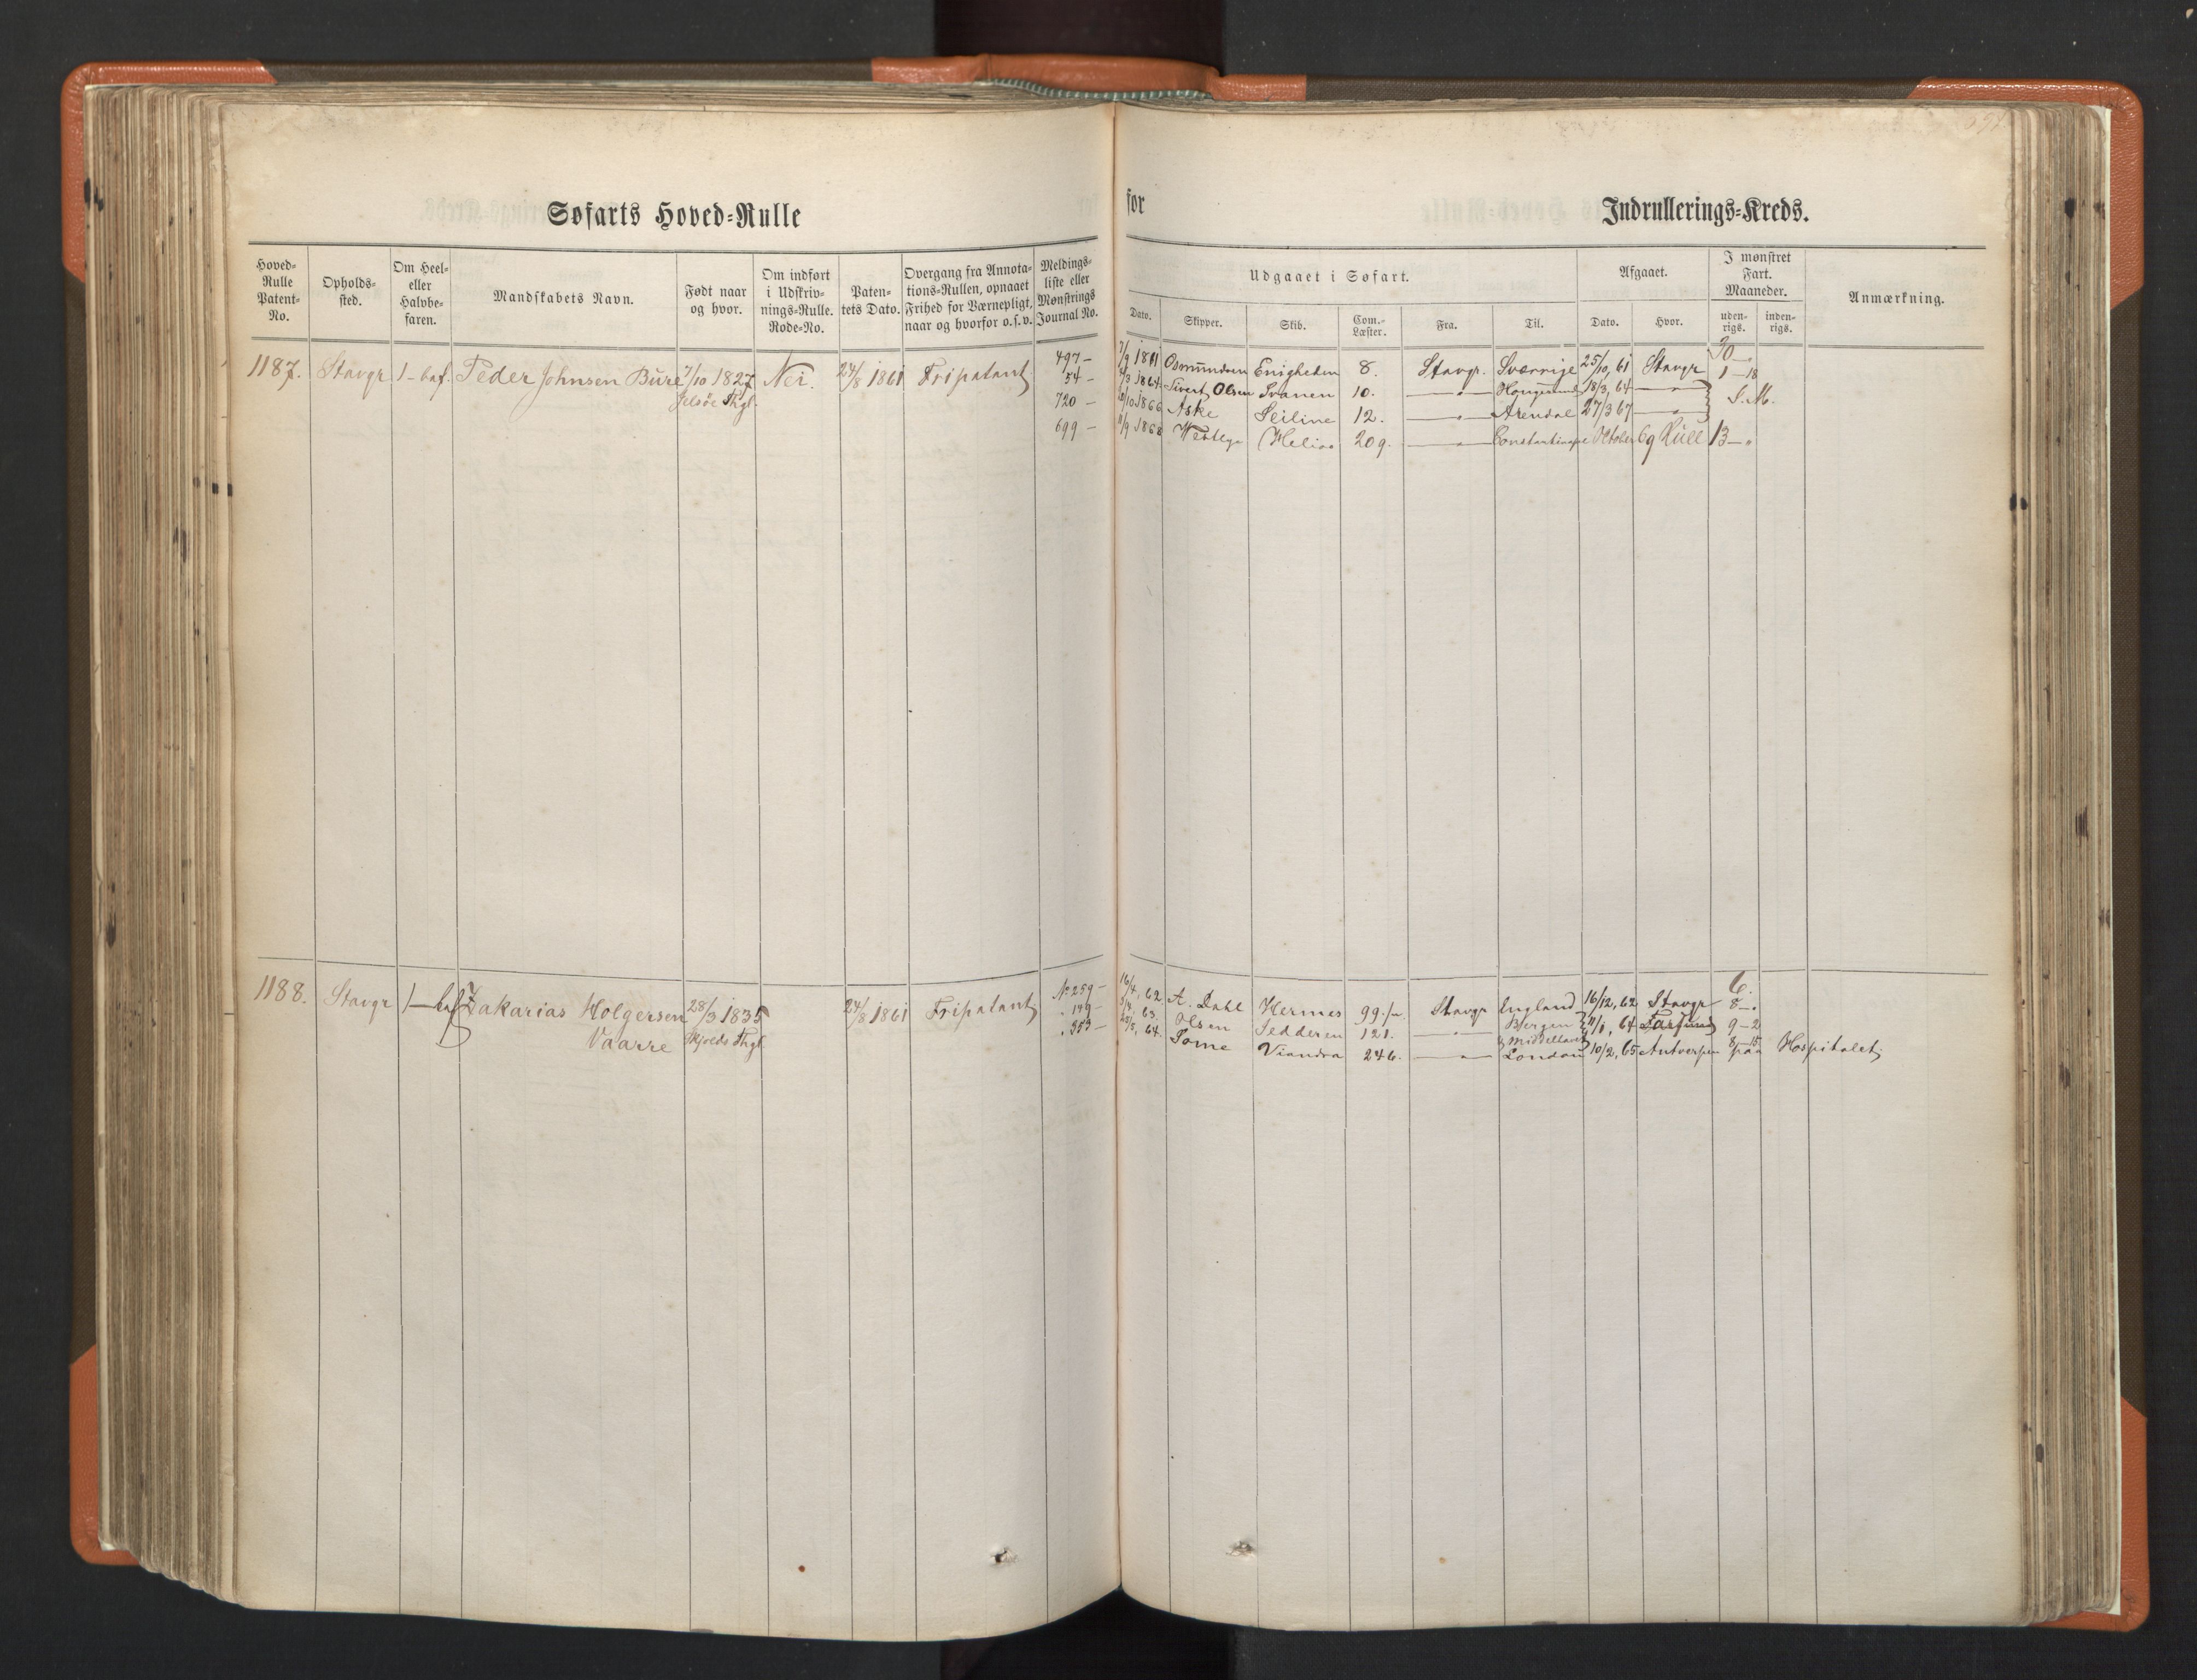 Søfarts Hoved-Rulle
for
Indrullerings-Kreds.
Hoved-
Rulle
Patent-
No.
Opholds-
sted.
Om Heel-
eller
Halvbe-
faren.
Mandskabets Navn.
Født naar
og hvor.
Om indført
i Udskriv-
nings-Rulle.
Rode-No.
Paten-
tets Dato.
Overgang fra Annota-
tions-Rullen, opnaaet
Frihed for Værnepligt,
naar og hvorfor o. s. v.
Meldings-
liste eller
Mønstrings
Journal No.
Udgaaet i Søfart.
Dato.
Skipper.
Skib.
Com.-
Læster.
Fra.
Til.
Afgaaet.
Dato.
Hvor.
I mønstret
Fart.
Maaneder.
uden-
rigs.
inden-
rigs.
Anmærkning.
1187. Stavgr 1-baf. Peder Johnsen Bure 7/10 1827 Nei. 24/8 1861 Fripatent
Jelsöe Thgl.
497- 7/9 1861 Osmundsen Enigheden 8. Stavgr. Sverrige 25/10, 61 Stavgr
54- 1864 Sivert Olsen Svanen 10. —„— 18/3, 64 —„— 1-18
720- 1866 Aske Seiline 12. —„— Arendal 27/3 67 —„— S.M.
699- 11/9 1868 Helios 209. —„— October 69 Hull 13-„
1188. Stavgr 1-baf Zakarias Holgersen 28/3 1835 24/8 1861 Fripatent
Vaarre Skjolds Thgl.
No 259- 16/4, 62 A. Dahl Hermes 99 Stavgr England 16/12, 62 Stavgr 8-
„ 149- 63. Olsen Pedderen 121. —„— Bergen 11/1, 64 Farsund 9-2
& Middelhavet
„ 353- 64. Viandra 246. —„— London 10/2, 65 Antverpen 8-15
paa Hospitalet